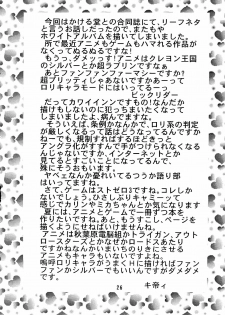 今回はかける堂との合同誌にて、リーフネタ
と言うお話しだったので、またもや
ホワイトアルバムを描いてしまいました。
所で最近アニメもゲームもハマれる作品が
なくってぬるぬるですね!
もう、ダメッす!アニメはクレヨン王国
のシルバーとか超ラブリンですなぁ。
あとはファンファンファーマシィーですか!
超プリッティじゃないですか!もう心は
ロリキャラモードにはいってるーっ
ビックリダー
だってカワイインですもの!なんだか
描けもしないのに犯っちまいたくなって
しまいましたよ、病んでますな。
そういえば、条例かなんかで、ロリ系の判定
が厳しくなるって話はどうなってるんですか
ねー?でも、規制すればするほどきっと
アングラ化がすすんで手がつけられなくなる
んじゃないですか、インターネットとか
見てるとすごいことになってるんで、
殊にそうおもいます。
ヤベェなんか憂いてるっつうか語り部
はいってますね。
さて、ゲームはストゼロ3ですか、コレしか
ないでしょう。ひさしぶりキャミィーって
感じでカリンやミカちゃんとか気にります
夏には、アニメとゲームで一冊ずつ本を
作りたいんですけど、あうち、もし、ページを
描ききれなかったらいけないので、
アニメは秋葉原電脳組かトライガン、アウト
ロースターズとかなぜかロードスあたり
ですかねぇ、心ひかれるものがありますね
アニメもキャラもいないですよね。
嗚呼ロリキャラがうまくHに描ければファン
ファンかシルバーでもいいんすがダメダメ
です。
キ帝ィ
26